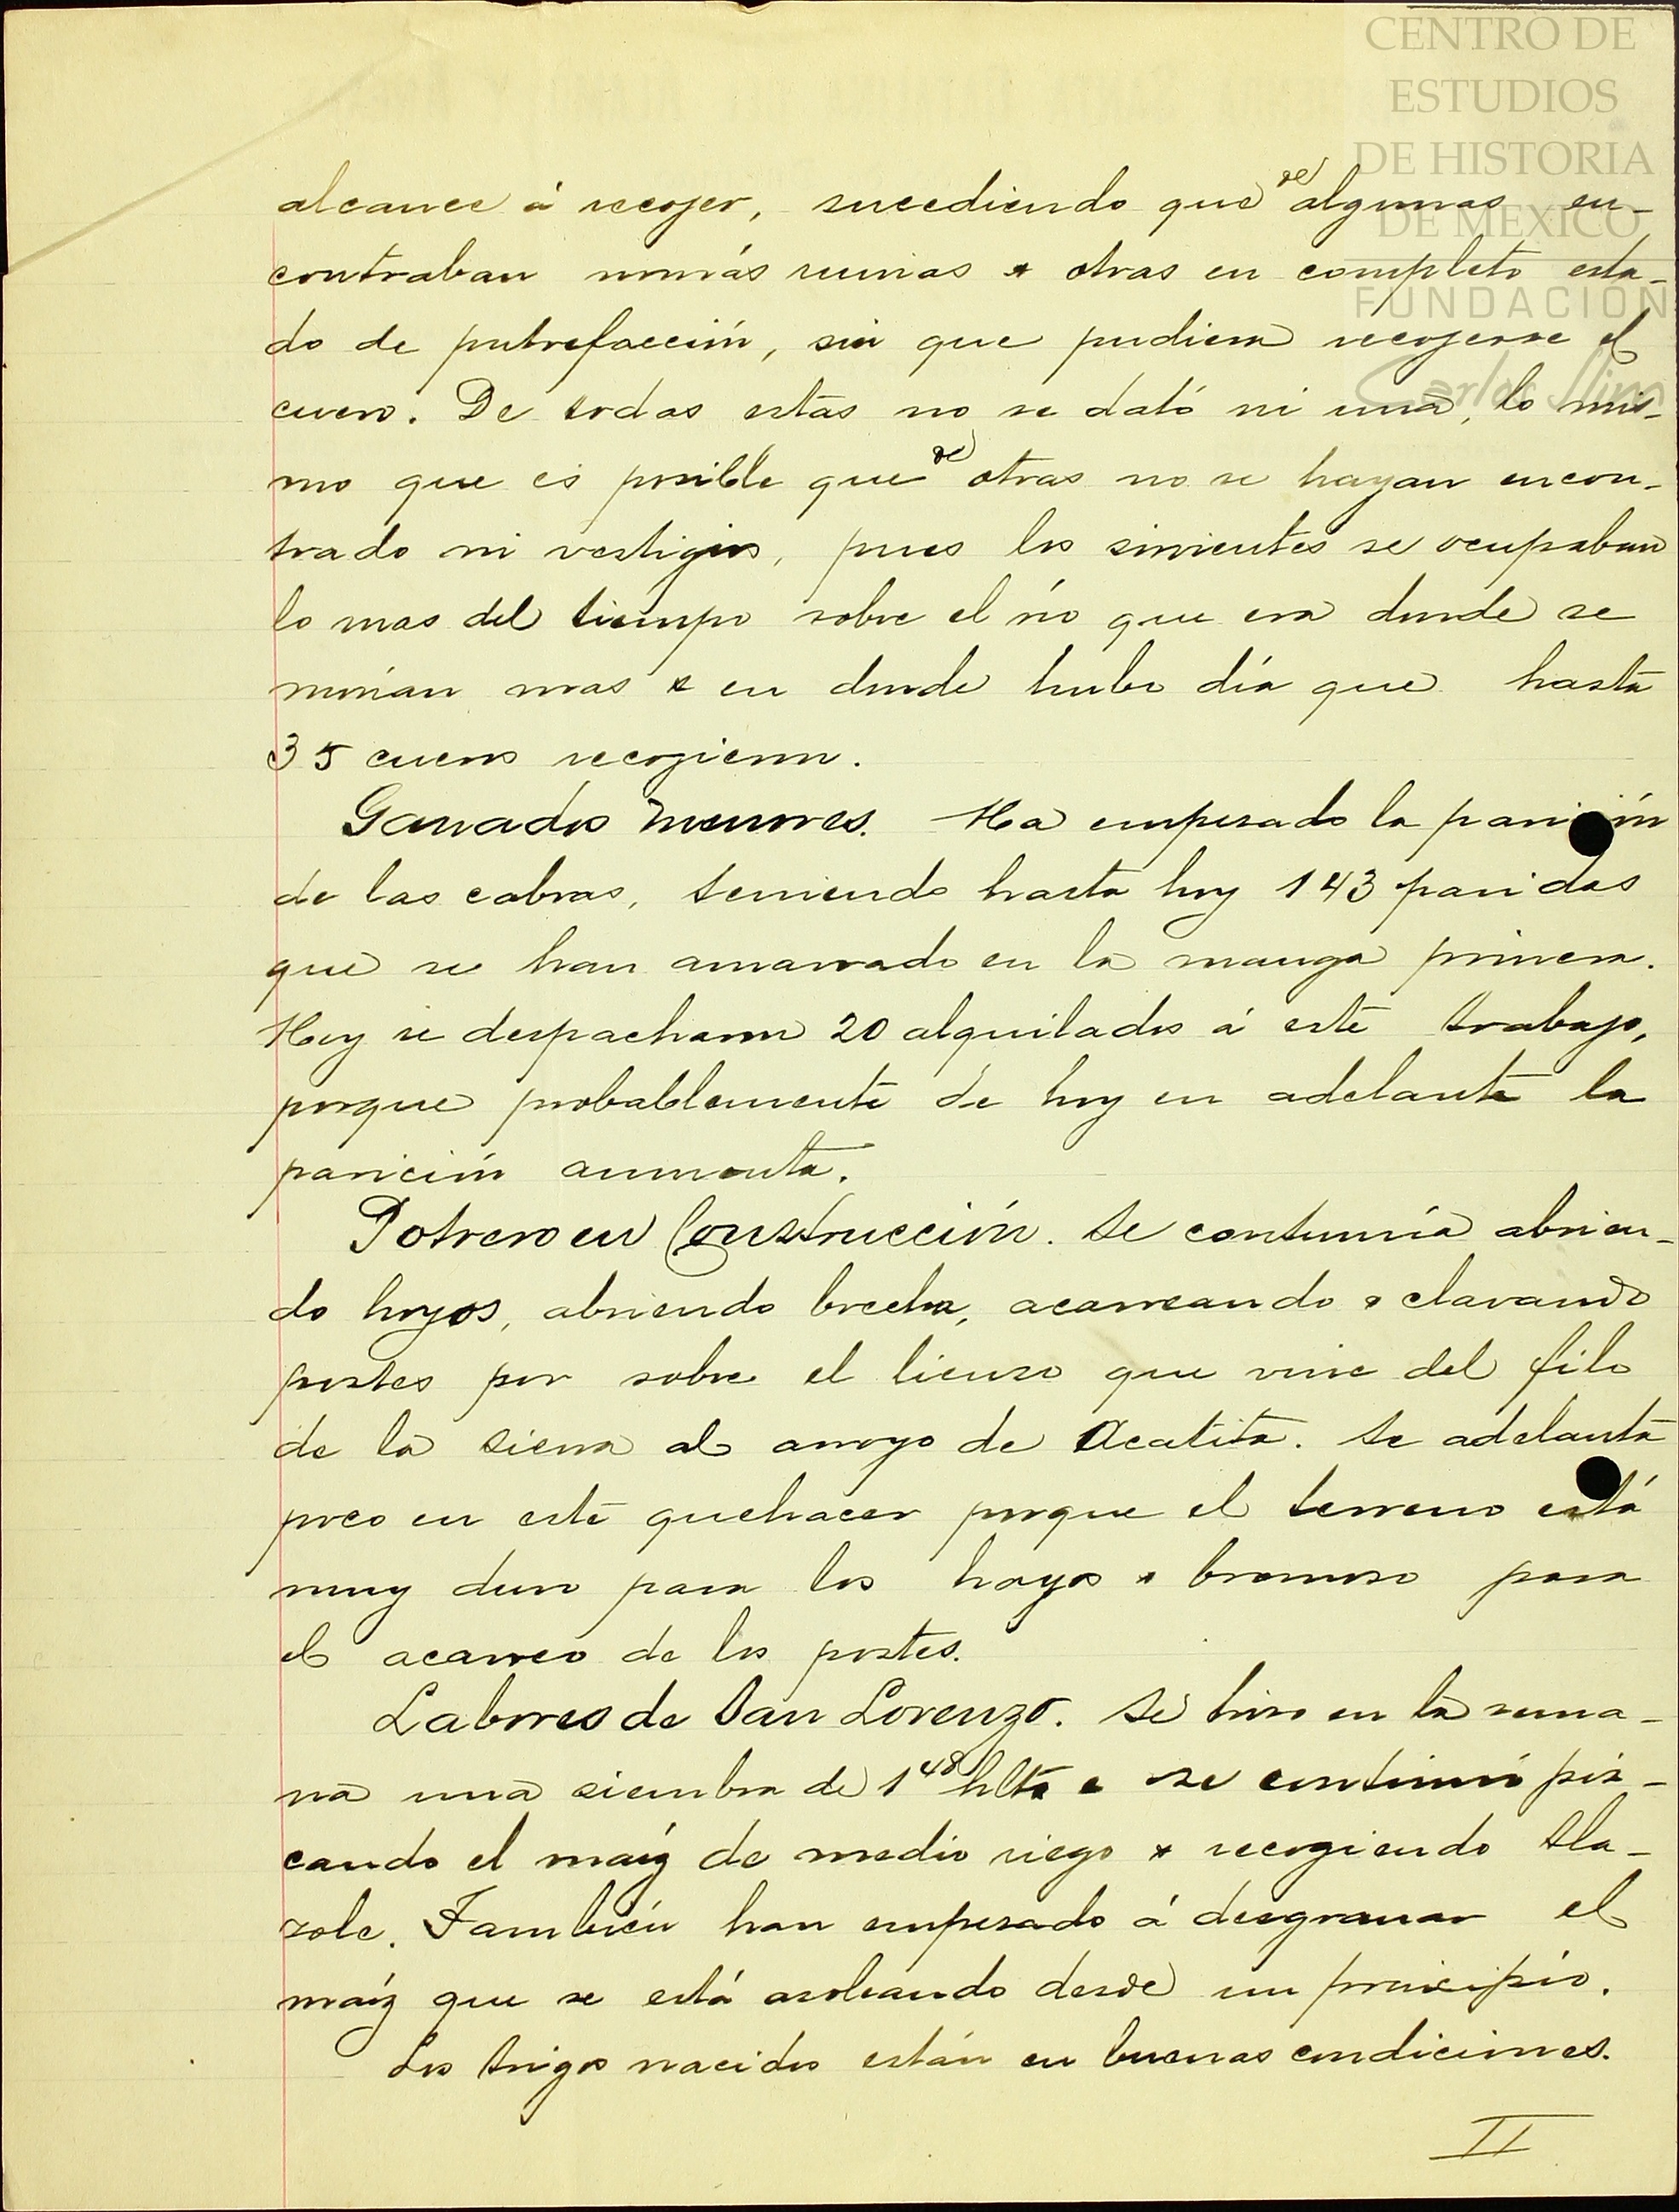 CENTRO DE
ESTUDIOS
DE HISTORIA
DE MEXICO
FUNDACIÓN
Carlos Slim
alcance á recojer, sucediendo que de algunas en-
contraban nomás ruinas & otras en completo esta-
do de putrefacción, sin que pudiera recojerse el
cuero. De todas estas no se dató ni una, lo mis-
mo que es posible que de otras no se hayan encon-
trado ni vestigios, pues los sirvientes se ocupaban
lo mas del tiempo sobre el río que era donde se
morían mas & en donde hubo día que hasta
35 cueros recogieron.
Ganados menores. Ha empesado la parición
de las cabras, teniendo hasta hoy 143 paridas
que se han amarrado en la manga primera.
Hoy se despacharon 20 alquilados á este trabajo,
porque probablemente de hoy en adelante la
parición aumenta.
Potrero en Construcción. Se continúa abrien-
do hoyos, abriendo brecha, acarreando & clavando
postes por sobre el lienso que vine del filo
de la sierra al arroyo de Acatita. Se adelanta
poco en este quehacer porque el terreno está
muy duro para los hoyos & bromoso para
el acarreo de los postes.
Labores de San Lorenzo. Se hiso en la sema-
na una siembra de 1 48 hlts & se continuó pis-
cando el maíz de medio riego & recogiendo tla-
sole. También han empesado á desgranar el
maíz que se está asoleando desde un principio.
Los trigos nacidos están en buenas condiciones.
II